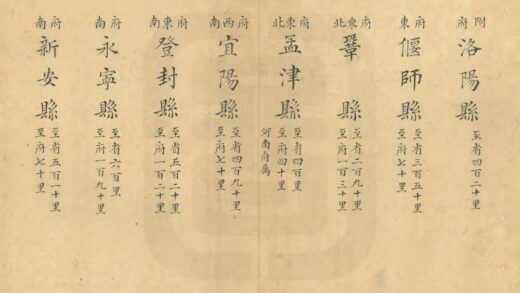 附府
洛陽縣
至省四百二十里
府東
偃師縣
至省三百五十里
至府七十里
府東北
鞏縣
至省二百九十里
至府一百三十里
府東北
孟津縣
至省四百里
至府四十里
河南府屬
府西南
宜陽縣
至省四百九十里
至府七十里
府東南
登封縣
至省五百二十里
至府一百二十里
府南
永寧縣
至省六百里
至府一百九十里
府南
新安縣
至省五百一十里
至府七十里